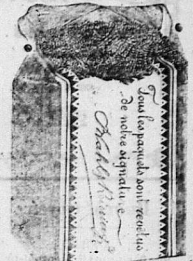 Tous les paquets sont revêtus
de notre signature